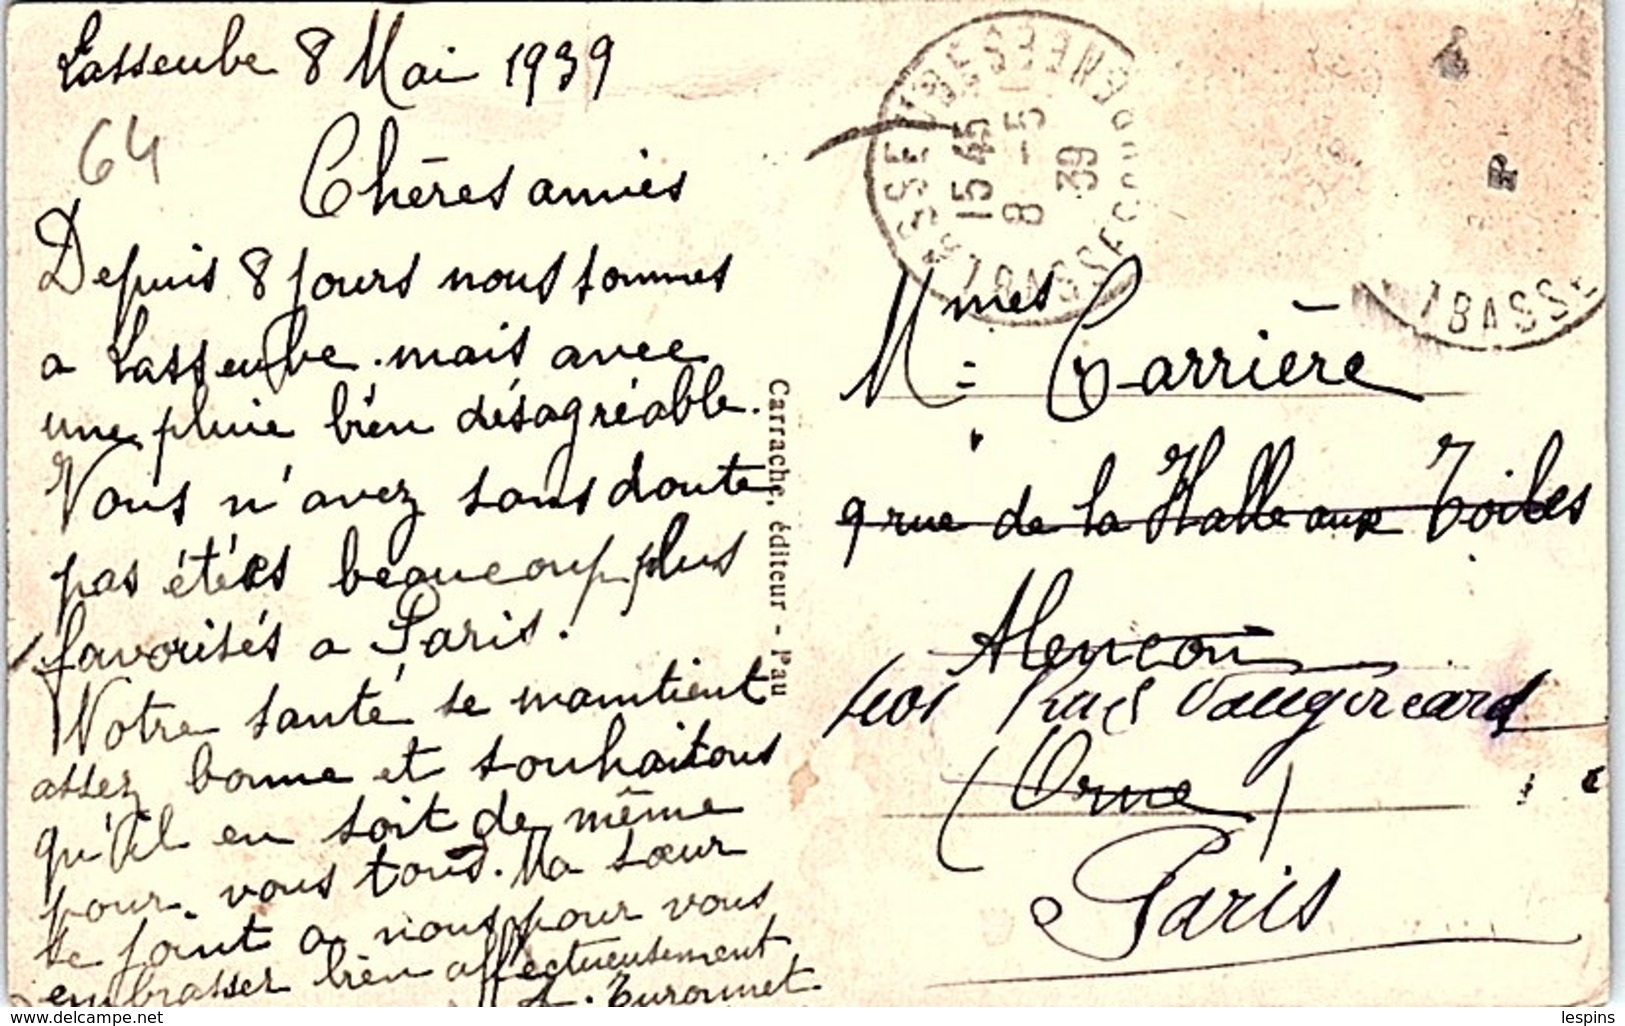 Lasseube 8 Mai 1939
64
Chères amies
Depuis 8 jours nous sommes
a Lasseube mais avec
une pluie bien désagréable.
Vous n'avez sans doute
pas étés beaucoup plus
favorisés a Paris.
Notre santé se maintient
assez bonne et souhaitons
qu'il en soit de même
pour vous tous. Ma sœur
se joint a nous pour vous
embrasser bien affectueusement
Carrache, éditeur - Pau
LASSEUBE
15 45
8 - 5
39
BASSES
BASSE
Mmes Carrière
9 rue de la Halle aux Toiles
Alençon
Rue Vaugirard
(Orne)
Paris
www.delcampe.net
lespins